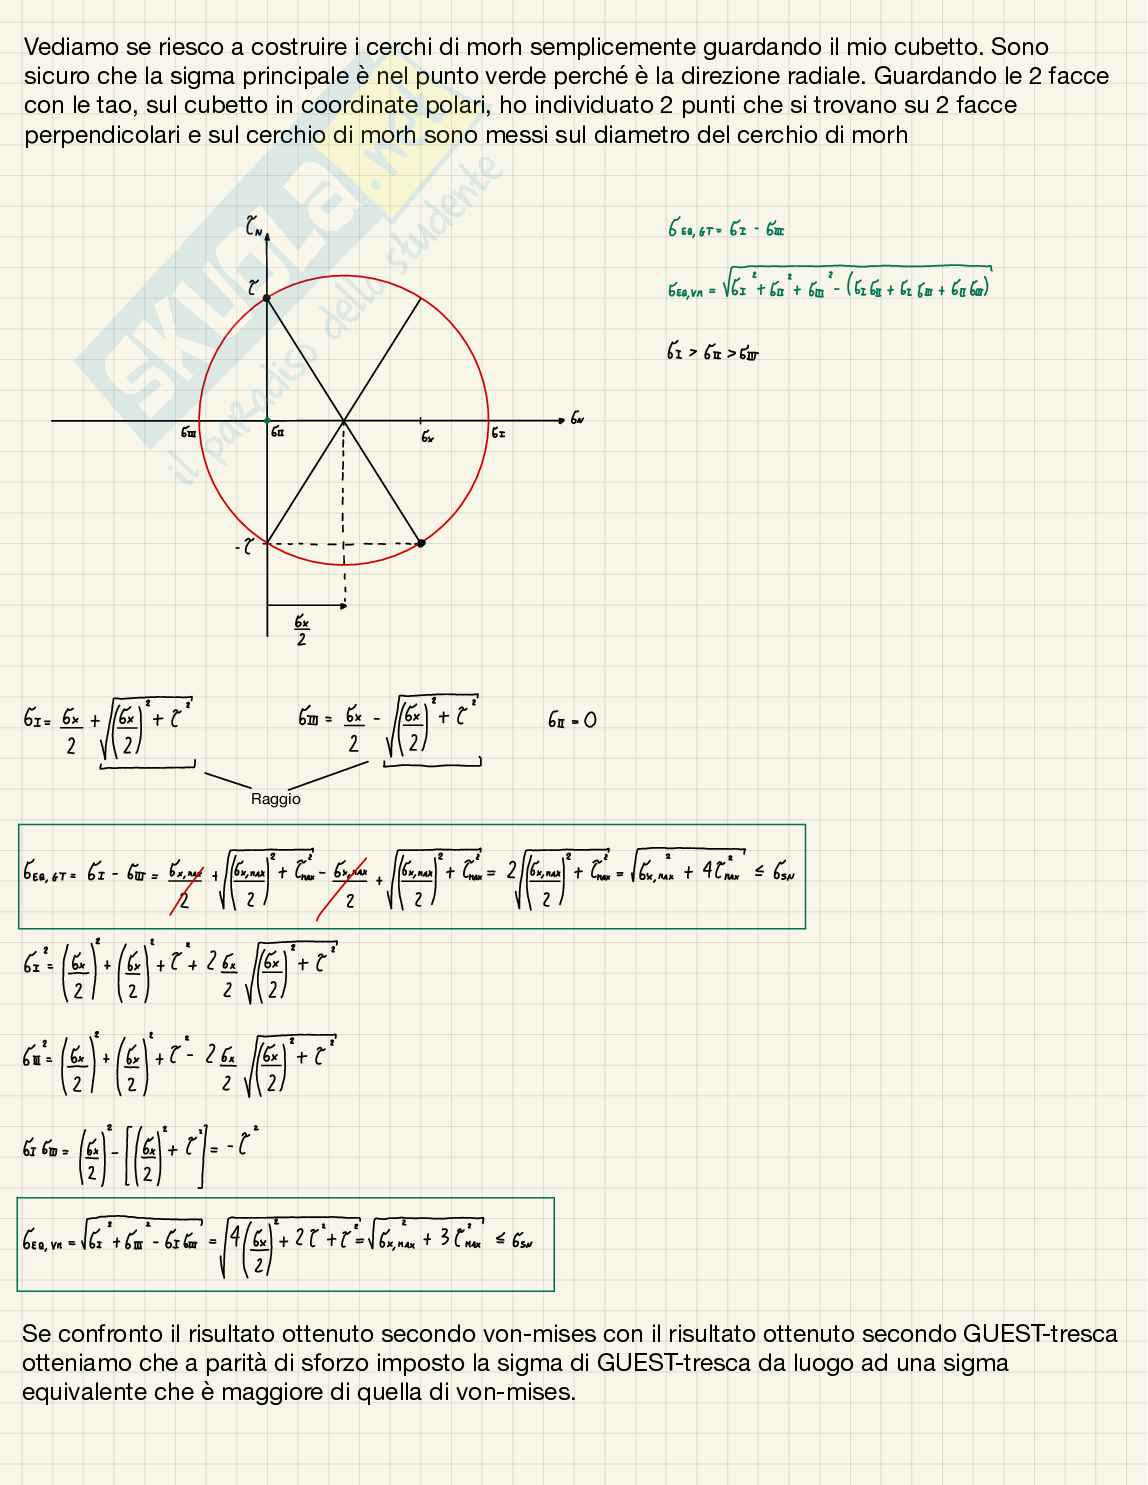 Vediamo se riesco a costruire i cerchi di morh semplicemente guardando il mio cubetto. Sono
sicuro che la sigma principale è nel punto verde perché è la direzione radiale. Guardando le 2 facce
con le tao, sul cubetto in coordinate polari, ho individuato 2 punti che si trovano su 2 facce
perpendicolari e sul cerchio di morh sono messi sul diametro del cerchio di morh
SKUOLA.net
il paradiso dello studente
τN
τ
σEQ,GT = σI - σIII
σEQ,VM = √(σI² + σII² + σIII² - (σI σII + σI σIII + σII σIII))
σI > σII > σIII
σN
σIII σII σx σI
-τ
σx/2
σI = σx/2 + √((σx/2)² + τ²) σIII = σx/2 - √((σx/2)² + τ²) σII = 0
Raggio
σEQ,GT = σI - σIII = σx,MAX/2 + √((σx,MAX/2)² + τMAX²) - σx,MAX/2 + √((σx,MAX/2)² + τMAX²) = 2√((σx,MAX/2)² + τMAX²) = √(σx,MAX² + 4τMAX²) ≤ σSN
σI² = (σx/2)² + (σx/2)² + τ² + 2 σx/2 √((σx/2)² + τ²)
σIII² = (σx/2)² + (σx/2)² + τ² - 2 σx/2 √((σx/2)² + τ²)
σI σIII = (σx/2)² - [(σx/2)² + τ²] = -τ²
σEQ,VM = √(σI² + σIII² - σI σIII) = √(4(σx/2)² + 2τ² + τ²) = √(σx,MAX² + 3τMAX²) ≤ σSN
Se confronto il risultato ottenuto secondo von-mises con il risultato ottenuto secondo GUEST-tresca
otteniamo che a parità di sforzo imposto la sigma di GUEST-tresca da luogo ad una sigma
equivalente che è maggiore di quella di von-mises.